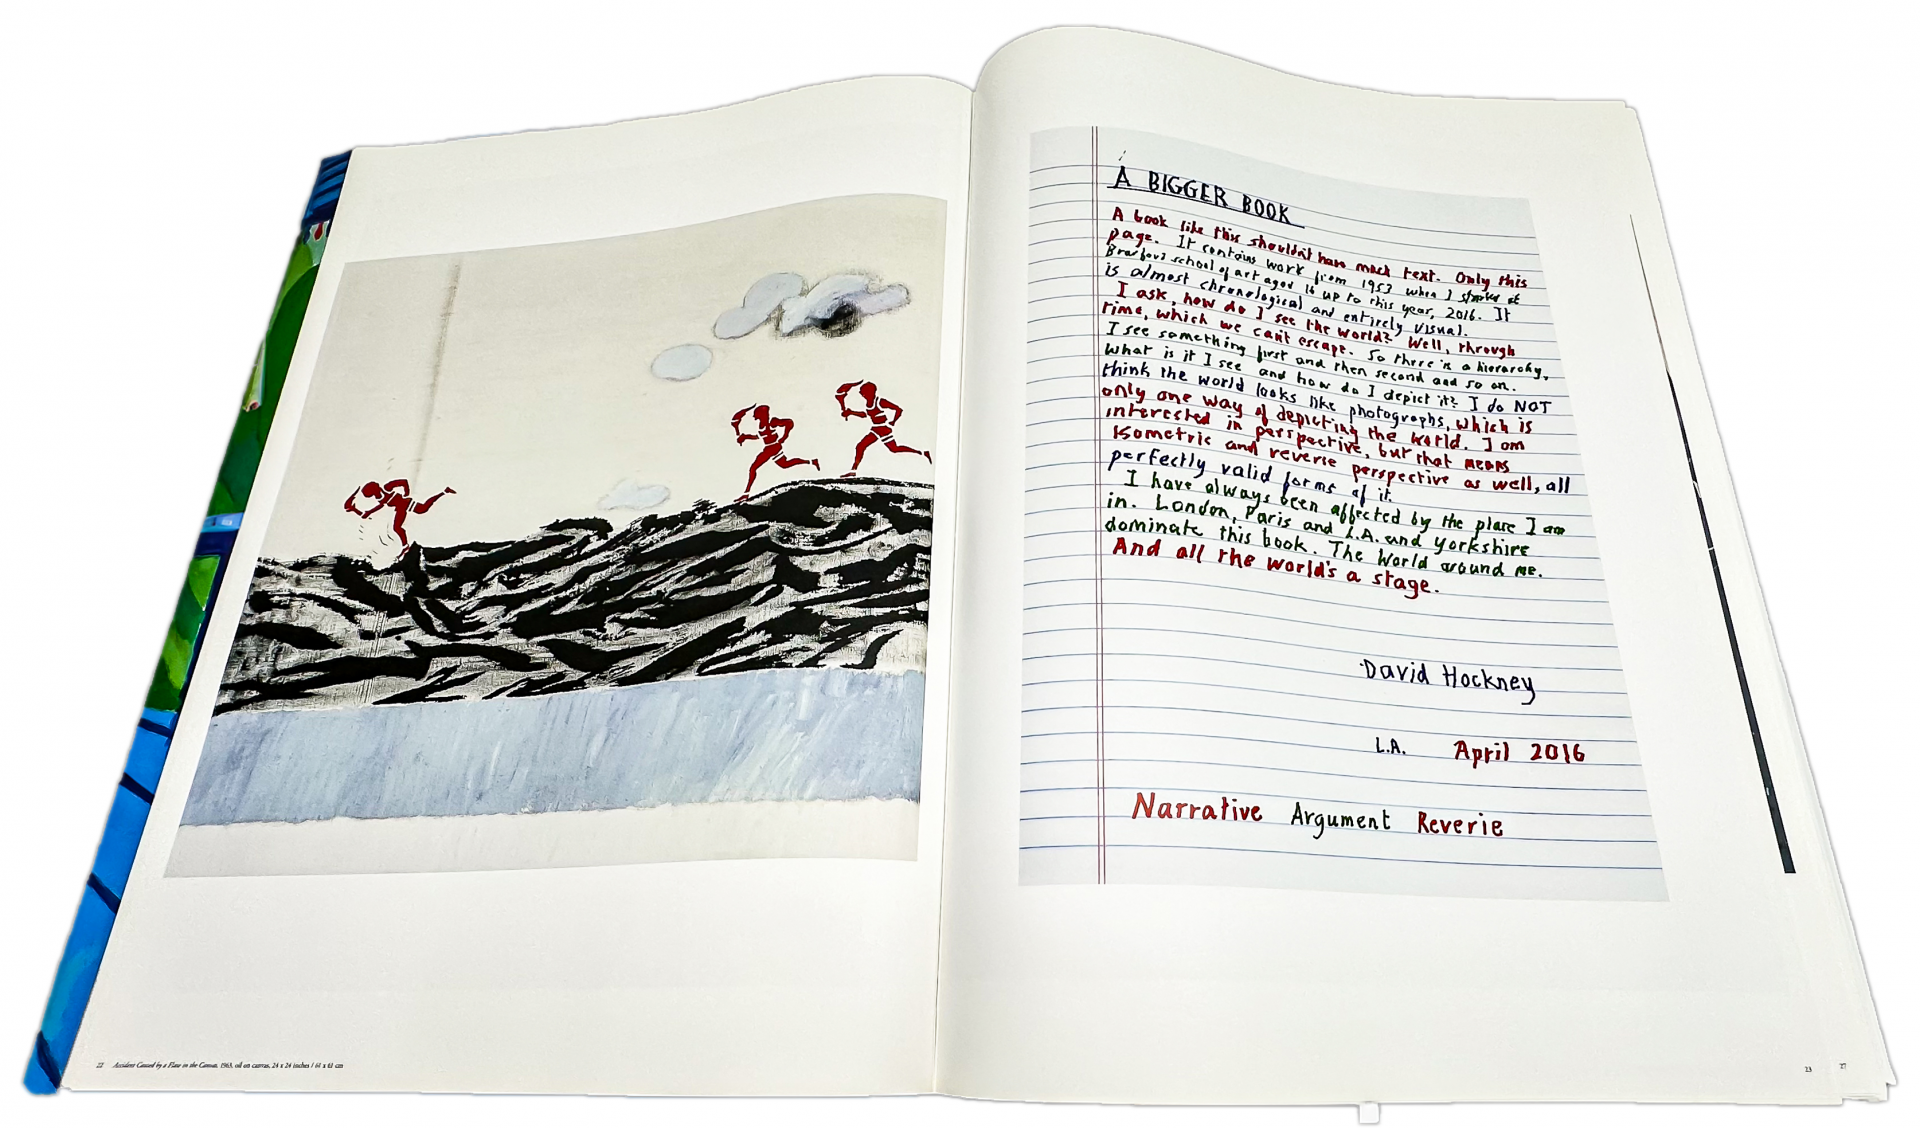 22 Accident Caused by a Flaw in the Canvas, 1963, oil on canvas, 24 x 24 inches / 61 x 61 cm
A BIGGER BOOK
A book like this shouldn't have much text. Only this
page. It contains work from 1953 when I started at
Bradford school of art aged 16 up to this year, 2016. It
is almost chronological and entirely visual.
I ask, how do I see the world? Well, through
time, which we can't escape. So there is a hierarchy,
I see something first and then second and so on.
What is it I see and how do I depict it? I do NOT
think the world looks like photographs, which is
only one way of depicting the world. I am
interested in perspective, but that means
isometric and reverse perspective as well, all
perfectly valid forms of it.
I have always been affected by the place I am
in. London, Paris and L.A. and Yorkshire
dominate this book. The World around me.
And all the world's a stage.
David Hockney
L.A. April 2016
Narrative Argument Reverie
23
27